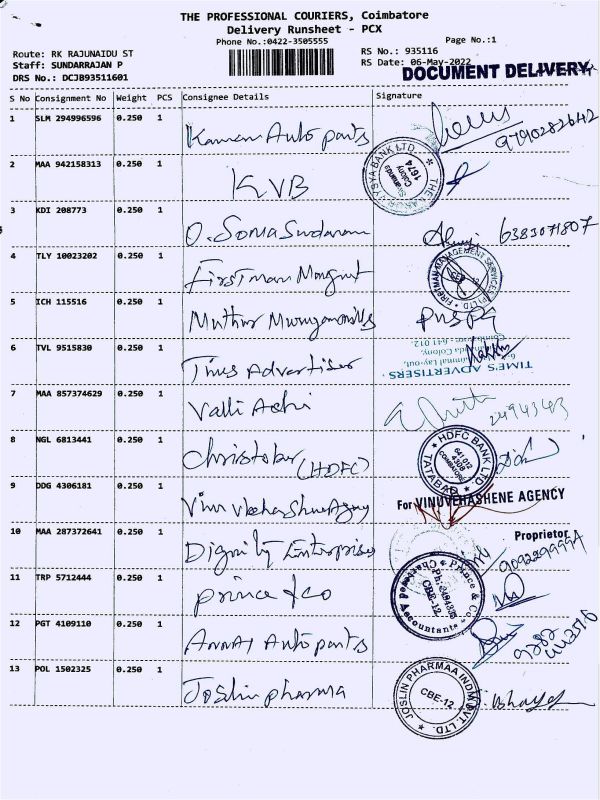 THE PROFESSIONAL COURIERS, Coimbatore
Delivery Runsheet - PCX
Phone No.:0422-3505555
Page No.:1
Route: RK RAJUNAIDU ST
RS No.: 935116
Staff: SUNDARRAJAN P
RS Date: 06-May-2022
DRS No.: DCJB93511601
DOCUMENT DELIVERY
S No Consignment No Weight PCS Consignee Details Signature
1 SLM 294996596 0.250 1 Kannan Auto parts 9790282642
2 MAA 942158313 0.250 1 KVB
THE KARUR VYSYA BANK LTD. 1674
3 KDI 208773 0.250 1 O. Soma Sundaram 6383071807
4 TLY 10023202 0.250 1 Firstman Mangmt
FIRSTMAN MANAGEMENT SERVICES (P) LTD
5 ICH 115516 0.250 1 Muthu Murugan mills
6 TVL 9515830 0.250 1 Times Advertiser
TIME'S ADVERTISERS
Coimbatore - 641 012.
7 MAA 857374629 0.250 1 Valli Achi
8 NGL 6813441 0.250 1 Christober (HDFC)
HDFC BANK LTD TATABAD 641 012 COIMBATORE
9 DDG 4306181 0.250 1
For VINUVEHASHENE AGENCY
Proprietor
10 MAA 287372641 0.250 1 Dignity Enterprises
11 TRP 5712444 0.250 1 Prince & co
Prince & Co. Chartered Accountants CBE-12
12 PGT 4109110 0.250 1 ANNAI Auto parts
13 POL 1502325 0.250 1 Joslin pharma
JOSLIN PHARMAA INDIA PVT. LTD. CBE-12